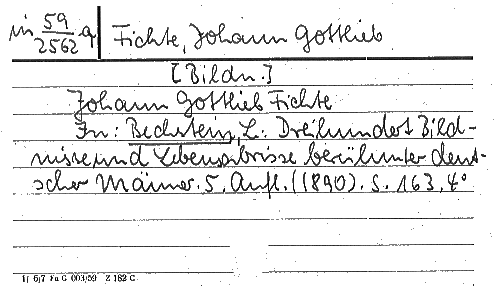 in 59/2562 q Fichte, Johann Gottlieb
[Bildn.]
Johann Gottlieb Fichte
In: Bechstein, L.: Dreihundert Bild-
nisse und Lebensabrisse berühmter deut-
scher Männer. 5. Aufl. (1890). S. 163, 4°
1/ 6/7 Fu G 003/59 Z 182 C